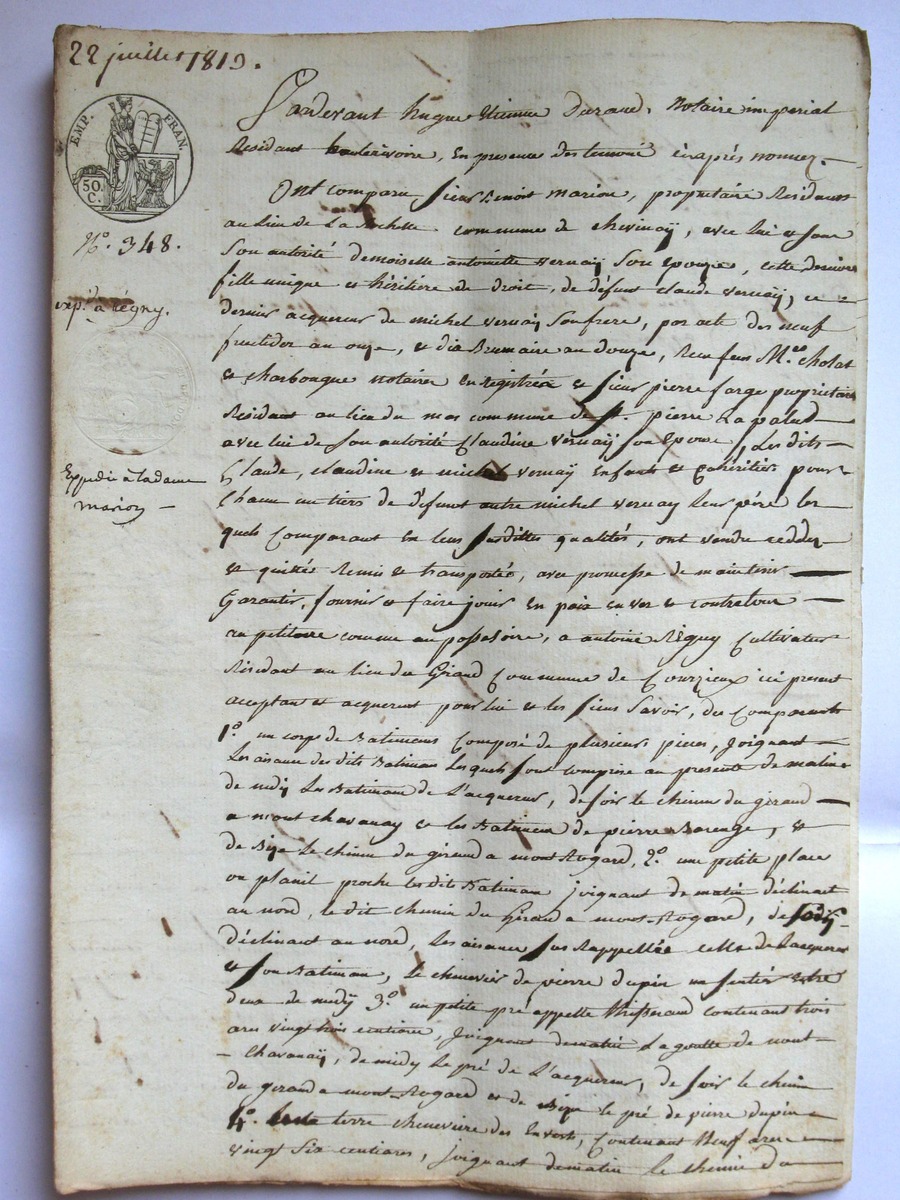 22 juillet 1813.
EMP. FRAN.
50. C.
N.o 348.
exp.on à régny.
Expédié à la dame
marion
Pardevant hugue Etienne Durand, Notaire imperial
Résidant , En presence des temoins ci après nommez.
Ont comparu sieur Benoit marion, propriétaire Résidant
au lieu de La Rochette commune de chevinaÿ, avec lui et sous
Son autorité demoiselle antoinette vernaÿ Son epouze, cette derniere
fille unique et héritiere de droit, de défunt claude vernaÿ, ce
dernier acquereur de michel vernaÿ Son frere, par acte des neuf
fructidor an onze, et dix Brumaire an douze, Reçu feus M.es cholat
& charbougne notaires Enregistrés & sieur pierre farge propriétaire
Résidant au lieu du mas commune de St. pierre La palud
avec lui de son autorité Claudine Vernaÿ son Epouse, Les dits
Claude, claudine & michel vernaÿ Enfants & Cohéritiers pour
Chacun un tiers de défunt autre michel vernay leur père les
quels Comparant En leus susdittes qualités, ont vendu cedder
& quitté Remis & transportés, avec promesse de maintenir
Garantir, fournir & faire jouir En paix envers & contre tous
au petitoire comme au possessoire, a antoine Régny Cultivateur
Résidant au lieu du Girand Commune de Courzieux ici present
acceptant et acquerant pour lui & les siens Savoir, des Comparants
1.o un corps de Batimens Composé de plusieurs pieces, Joignant
Les aisances des dits Batimans Lesquels sont comprise au presente de matin
de midÿ Les Batimans de L'acquereur, de soir le chemin du girand
a mont chavanay & les Batimens de pierre Barange, &
de Bize Le chemin du girand a mont Rogard, 2.o une petite place
ou planil proche les dits Batiman joignant de matin déclinant
au nord, le dit chemin du Girand a mont Rogard, de
déclinant au nord, Les aisances sus Rappellées celles de Lacquereur
& son Batiman, Le chenevier de pierre dupin un sentier entre
deux de midÿ 3.o un petite pré appellé contenant trois
ares vingt trois centiares, Joignant de matin La goutte de mont
Chavanaÿ, de midy Le pré de L'acquereur, de soir le chemin
du girand a mont Rogard et de Bize le pré de pierre dupin
4.o terre cheneviere des Envers, Contenant Neuf ares
vingt Six centiares, joignant de matin le chemin du